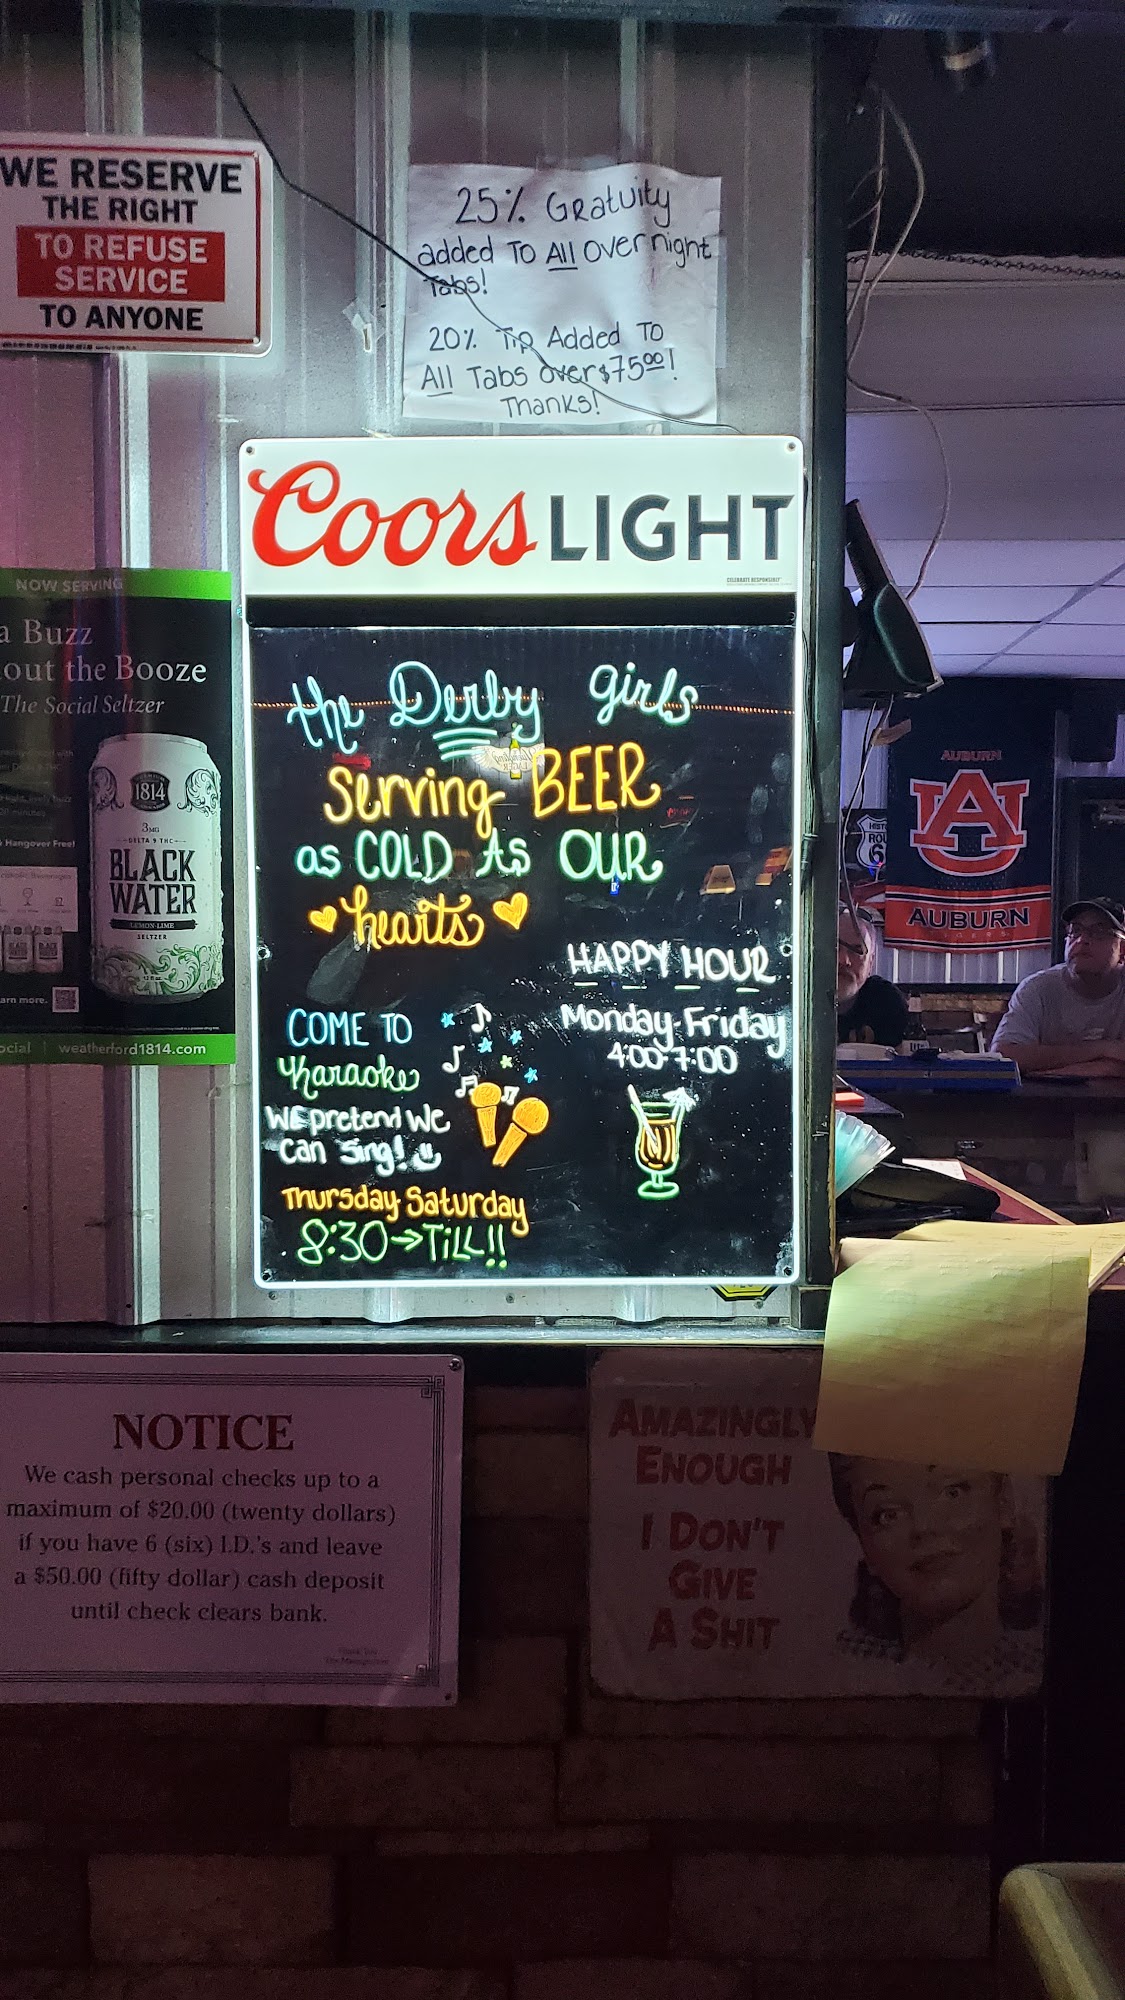 WE RESERVE
THE RIGHT
TO REFUSE
SERVICE
TO ANYONE
25% Gratuity
added To All Over night
Tabs!
20% Tip Added To
All Tabs over $75.00!
Thanks!
Coors LIGHT
CELEBRATE RESPONSIBLY
the Derby girls
Serving BEER
as COLD As OUR
hearts
HAPPY HOUR
Monday-Friday
4:00-7:00
COME TO
Karaoke
WE pretend We
Can Sing!
Thursday-Saturday
8:30→TiLL!!
NOW SERVING
a Buzz
out the Booze
The Social Seltzer
Hangover Free!
1814
3MG
DELTA 9 THC
BLACK
WATER
LEMON-LIME
SELTZER
arn more.
ocial | weatherford1814.com
AUBURN
AU
AUBURN
TIGERS
HISTO
ROU
6
NOTICE
We cash personal checks up to a
maximum of $20.00 (twenty dollars)
if you have 6 (six) I.D.'s and leave
a $50.00 (fifty dollar) cash deposit
until check clears bank.
AMAZINGLY
ENOUGH
I DON'T
GIVE
A SHIT